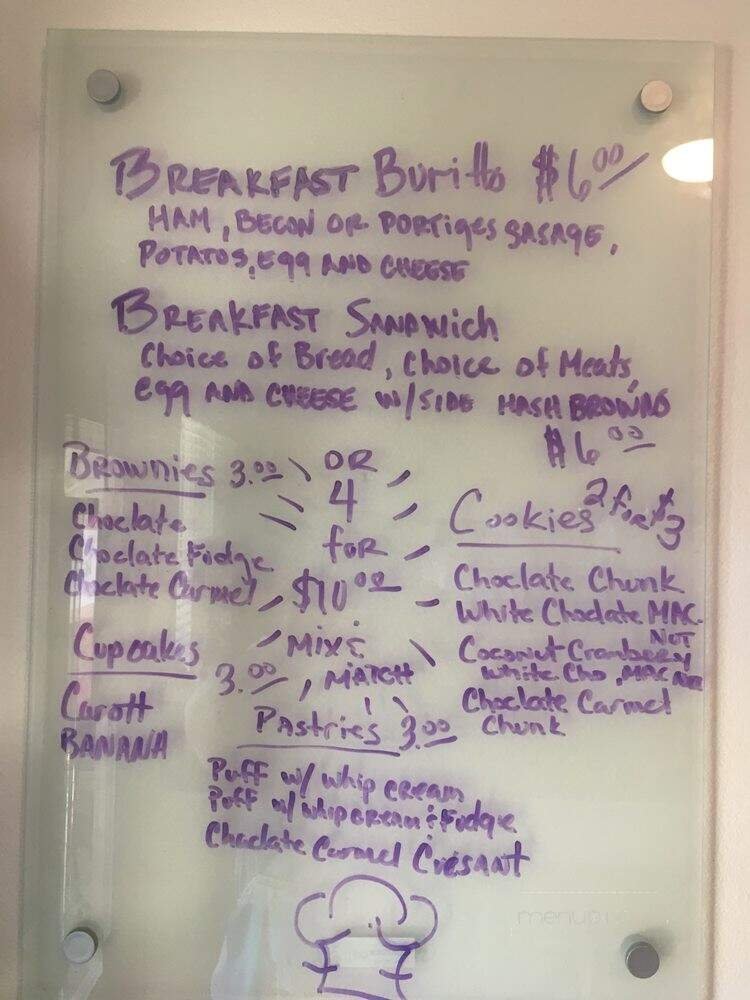 BREAKFAST Buritto $6.00
HAM, BECON OR PORTIGES SASAGE,
POTATOS, Egg AND CHEESE
BREAKFAST SANDWich
Choice of Bread, Choice of Meats,
Egg AND CHEESE W/SIDE HASH BROWNS
$6.00
BROWNIES 3.00
Choclate
Choclate Fudge
Choclate Carmel
Cupcakes
3.00
Carott
BANANA
OR
4
for
$10.00
MIX &
MATCH
Cookies 2 for $3
Choclate Chunk
White Choclate MAC.
NUT
Coconut Cranberry
White Cho, MAC Nut
Choclate Carmel
Chunk
Pastries 3.00
Puff w/ whip cream
Puff w/ whip cream & Fudge
Choclate Carmel CresANT
menupix